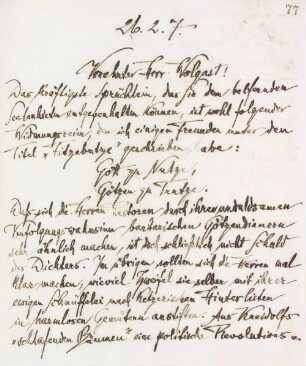 77
26. 2. 7.
Verehrter Herr Wolgast!
Das kräftigste Sprüchlein, das Sie den belfernden
Seelenhirten entgegenhalten können, ist wohl folgender
Widmungsreim, den ich einigen Freunden unter den
Titel "Fitzebutze" geschrieben habe:
Gott zu Nutze,
Götzen zu Trutze.
Daß sich die Herren Pastoren durch ihren unduldsamen
Verfolgungswahnsinn barbarischen Götzendienern
sehr ähnlich machen, ist doch schließlich nicht Schuld
des Dichters. Im übrigen sollten sich die Herren mal
klar machen, wieviel Zweifel sie selber mit ihrer
ewigen Schnüffelei nach ketzerischen Hinterlisten
in harmlosen Gemütern anstiften. Aus Kreidolfs
"schlafenden Bäumen" eine politische Revolutions-